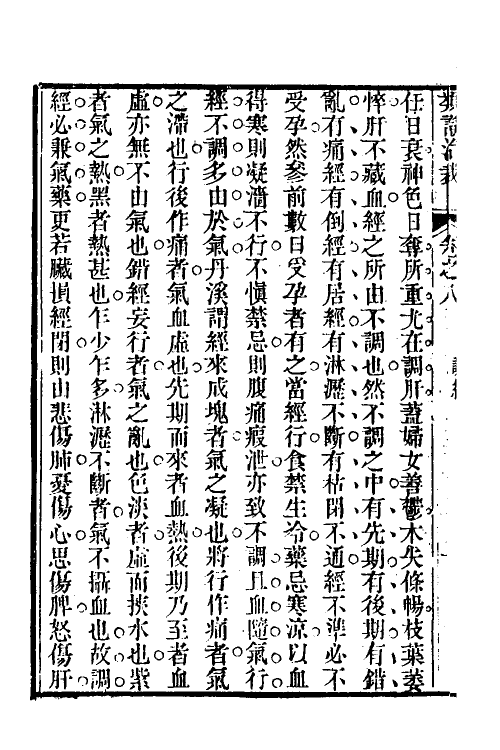 類證治裁 卷之八 調經
任日衰神色日奪所重尤在調肝蓋婦女善鬱木失條暢枝葉萎
悴肝不藏血經之所由不調也然不調之中有先期有後期有錯
亂有痛經有倒經有居經有淋瀝不斷有枯閉不通經不準必不
受孕然叅前數日受孕者有之當經行食禁生冷藥忌寒涼以血
得寒則凝濇不行不愼禁忌則腹痛瘕泄亦致不調且血隨氣行
經不調多由於氣丹溪謂經來成塊者氣之凝也將行作痛者氣
之滯也行後作痛者氣血虛也先期而來者血熱後期乃至者血
虛亦無不由氣也錯經妄行者氣之亂也色淡者虛而挾水也紫
者氣之熱黑者熱甚也乍少乍多淋瀝不斷者氣不攝血也故調
經必兼氣藥更若臟損經閉則由悲傷肺憂傷心思傷脾怒傷肝